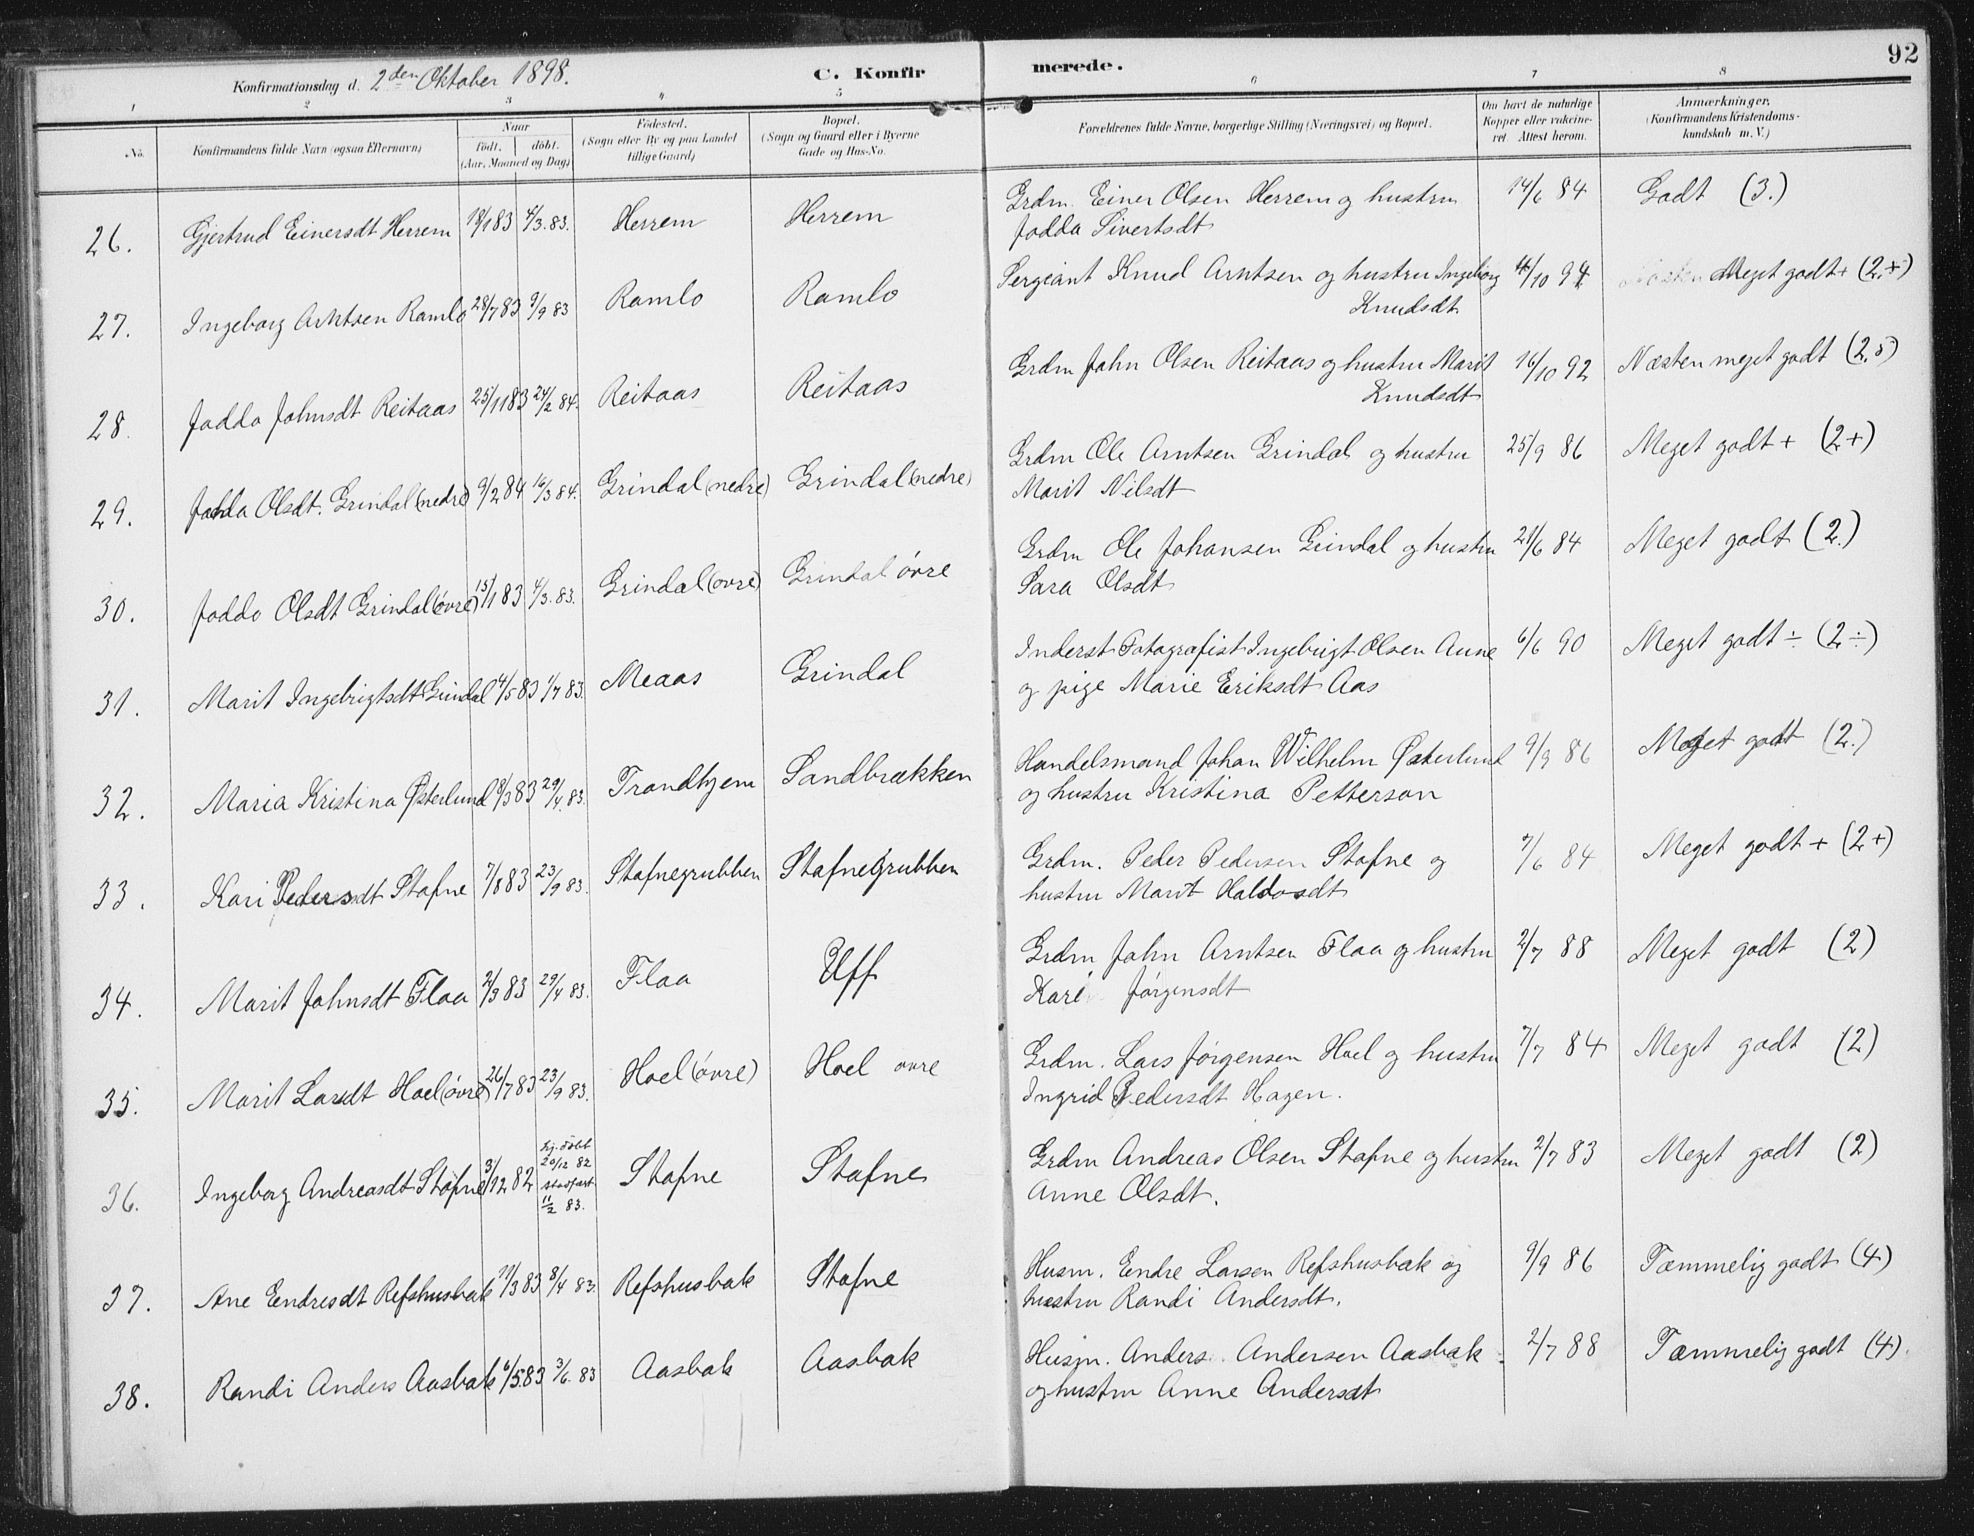 92
Konfirmationsdag d. 2den Oktober 1898.
C. Konfirmerede.
1 2 3 4 5 6 7 8
No.
Konfirmandens fulde Navn (ogsaa Efternavn)
Naar
födt. döbt.
(Aar, Maaned og Dag)
Födested.
(Sogn eller By og paa Landet
tillige Gaard)
Bopæl.
(Sogn og Gaard eller i Byerne
Gade og Hus-No.
Forældrenes fulde Navne, borgerlige Stilling (Næringsvei) og Bopæl.
Om havt de naturlige
Kopper eller vakcine-
ret. Attest herom.
Anmærkninger,
(Konfirmandens Kristendoms-
kundskab m. V.)
26. Gjertrud Einersdt Herrem 18/1 83 4/3 83. Herrem Herrem Grdm. Einer Olsen Herrem og hustru 14/6 84 Godt (3.)
Jodda Sivertsdt
27. Ingeborg Arntsen Ramlo 28/7 83 9/9 83 Ramlo Ramlo Sergeant Knud Arntsen og hustru Ingeborg /10 94 Meget godt+ (2.+)
Knudsdt
28. Joddo Johnsdt Reitaas 25/11 83 24/2 84. Reitaas Reitaas Grdm John Olsen Reitaas og hustru Marit 16/10 92 Næsten meget godt (2,5)
Knudsdt
29. Jodda Olsdt. Grindal (nedre) 9/2 84 16/3 84. Grindal (nedre) Grindal (nedre) Grdm Ole Arntsen Grindal og hustru 25/9 86 Meget godt + (2+)
Marit Nilsdt
30. Joddo Olsdt Grindal (óvre) 15/1 83 4/3. 83. Grindal (ovre) Grindal óvre Grdm Ole Johansen Grindal og hustru 21/6 84 Meget godt (2.)
Sara Olsdt
31. Marit Ingebrigtsdt Grindal 4/5 83 1/7 83. Meaas Grindal Inderst Fotografist Ingebrigt Olsen Aune 6/6 90 Meget godt ÷ (2÷)
og pige Marie Eriksdt Aas
32. Maria Kristina Østerlund /3 83 29/4 83. Trondhjem Sandbrækken Handelsmand Johan Wilhelm Østerlund 9/9 86 Meget godt (2.)
og hustru Kristina Petterson
33. Kari Pedersdt Stafne 7/8 83 23/9 83. Stafnegrubben Stafnegrubben Grdm. Peder Pedersen Stafne og 7/6 84 Meget godt + (2+)
hustru Marit Haldosdt
34. Marit Johnsdt Flaa 2/3 83 29/4 83. Flaa Uff Grdm John Arntsen Flaa og hustru 2/7 88 Meget godt (2)
Kari Jörgensdt
35. Marit Larsdt Hoel (óvre) 26/7 83 23/9 83. Hoel (óvre) Hoel ovre Grdm. Lars Jörgensen Hoel og hustru 7/7 84 Meget godt (2)
Ingrid Pedersdt Hagen.
36. Ingeborg Andreasdt Stafne 3/12 82 hj. döbt
20/12 82
stadfæst
11/2 83. Stafne Stafne Grdm Andreas Olsen Stafne og hustru 2/7 83 Meget godt (2)
Anne Olsdt.
37. Ane Endresdt Refshusbak 11/3 83 8/4 83. Refshusbak Stafne Husm. Endre Larsen Refshusbak og 9/9 86 Tæmmelig godt (4)
hustru Randi Andersdt.
38. Randi Anders Aasbak 6/5 83 3/6. 83 Aasbak Aasbak Husm. Anders Andersen Aasbak 2/7 88 Tæmmelig godt (4).
og hustru Anne Andersdt